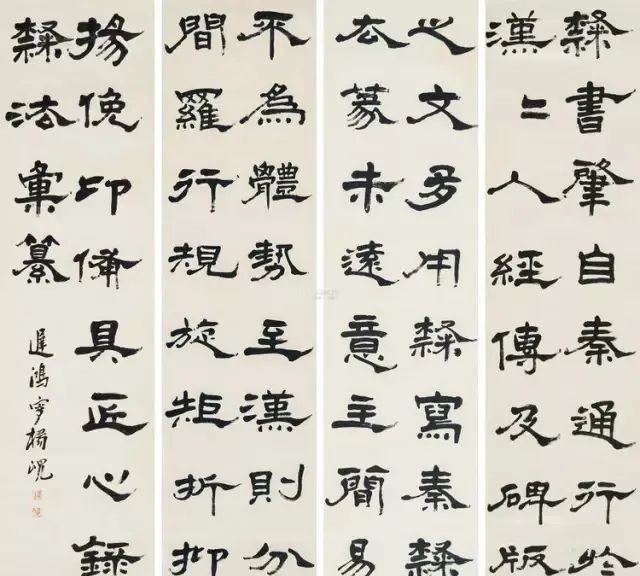 隸書肇自秦通行於
漢二人經傳及碑版
之文多用隸寫秦隸
去篆未遠意主簡易
平為體勢至漢則分
間羅行規旋矩折抑
揚俛卬備具匠心錄
隸法彙纂
遲鴻楊峴